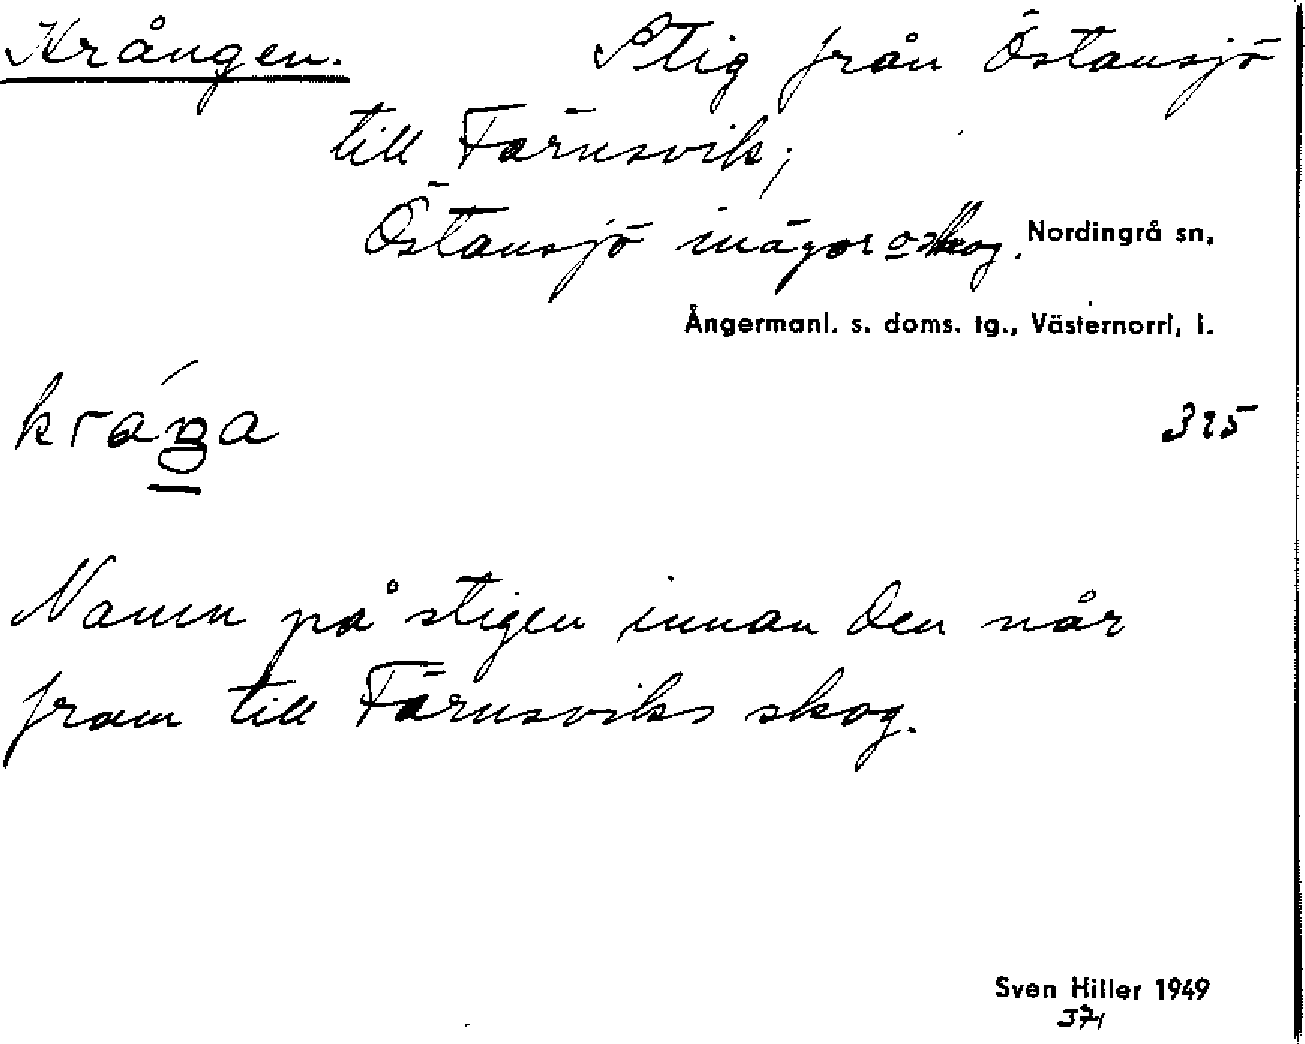 Krången. Stig från Östansjö
till Färnsvik;
Östansjö inägor o skog. Nordingrå sn,
Ångermanl. s. doms. tg., Västernorrl. l.
325
Namn på stigen innan den når
fram till Färnsviks skog.
Sven Hiller 1949
371